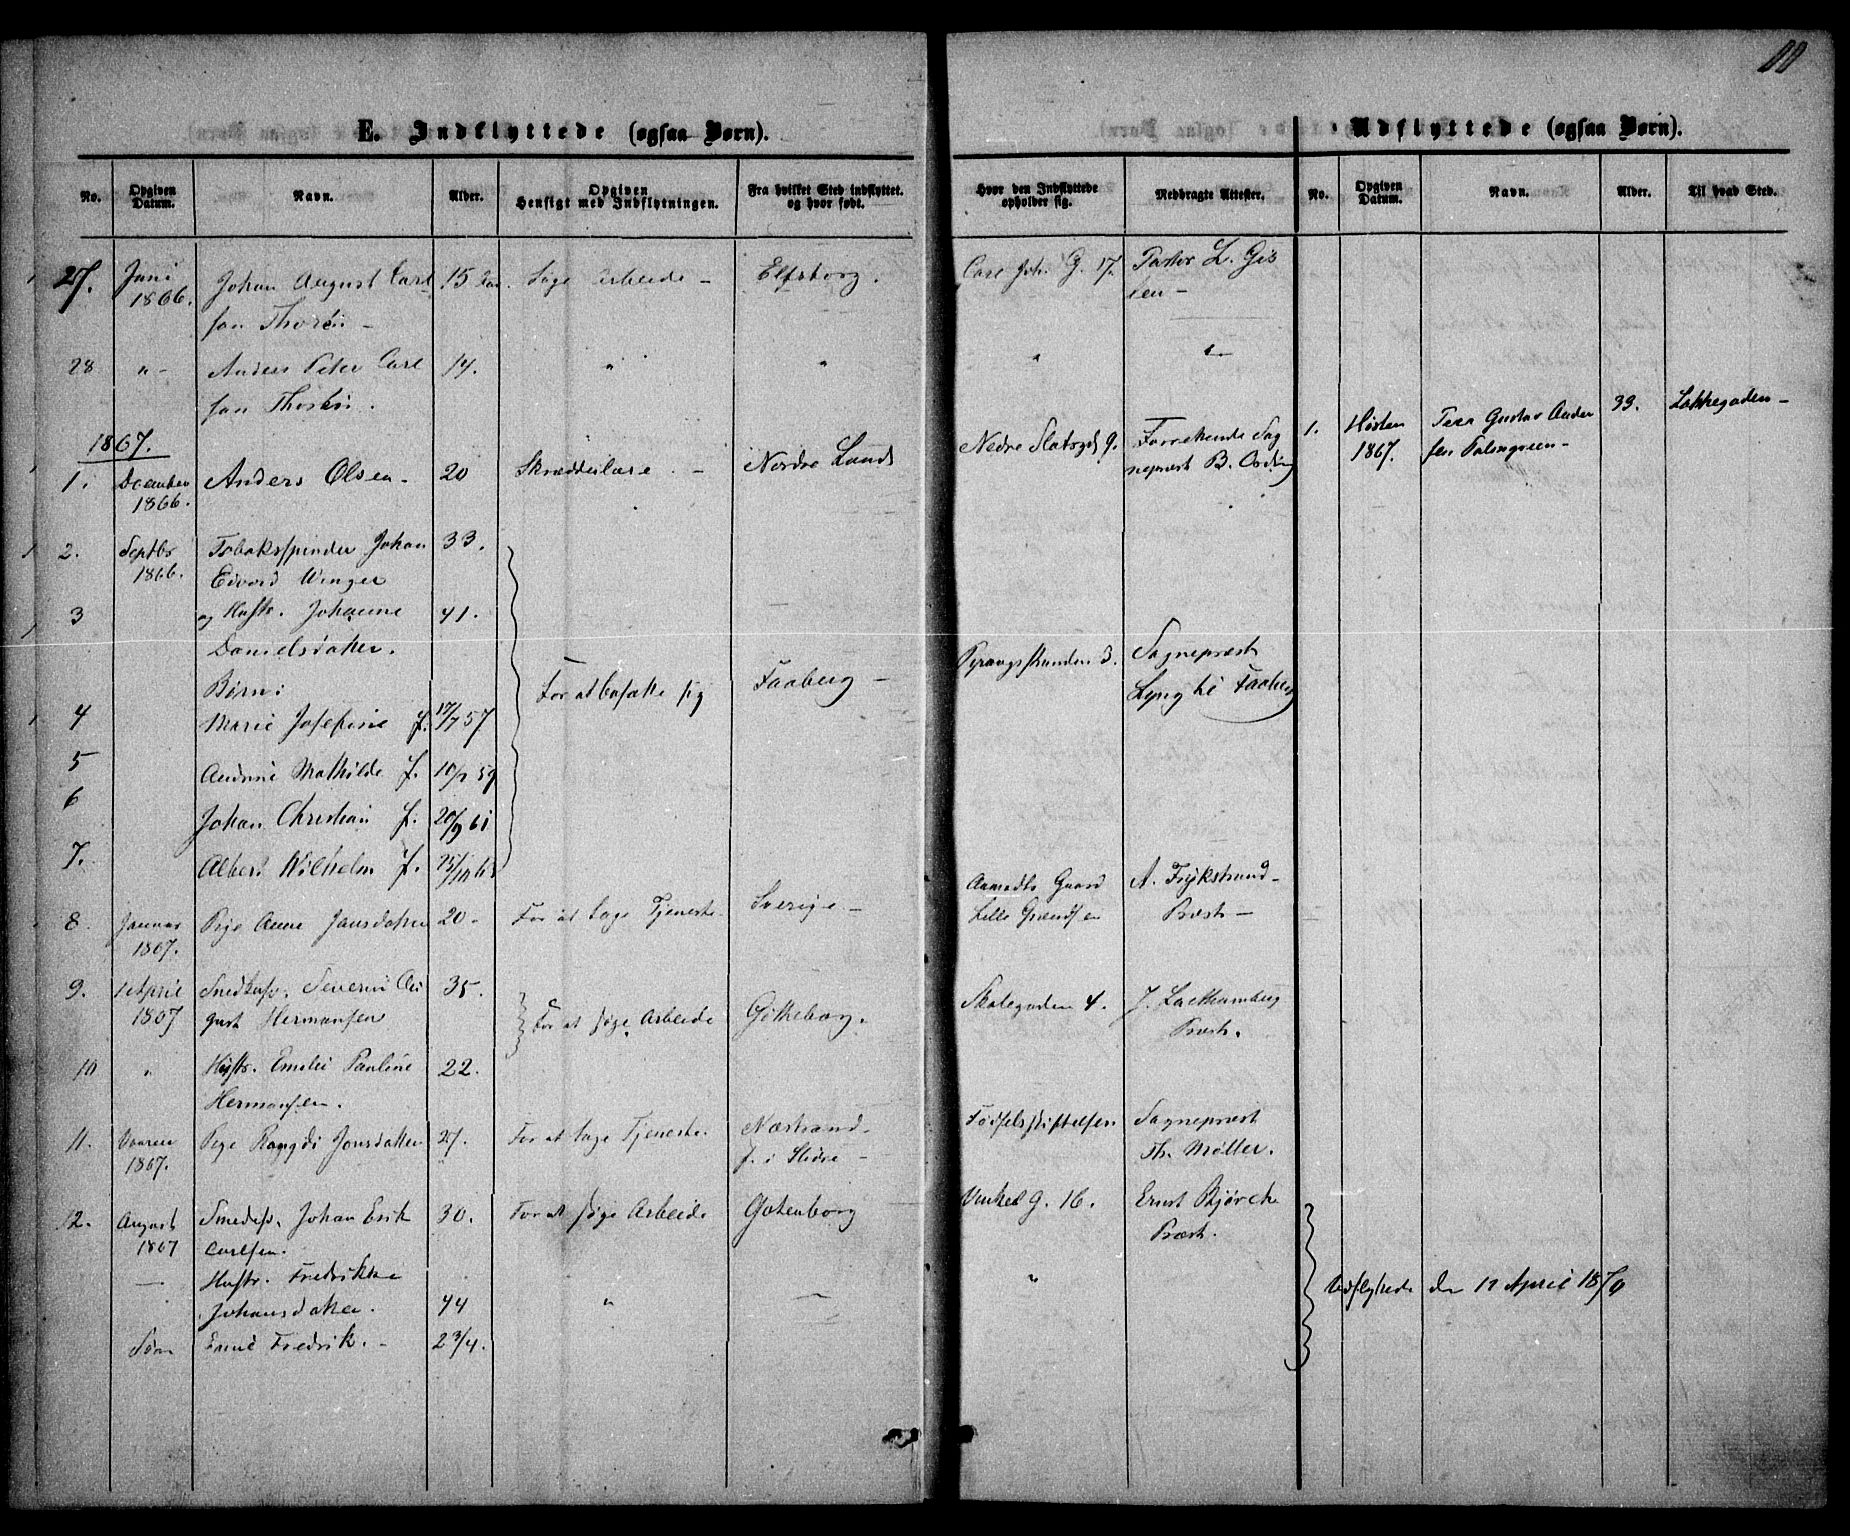 E. Indflyttede (ogsaa Børn).
Udflyttede (ogsaa Børn).
No.
Opgiven Datum.
Navn.
Alder.
Opgiven Hensigt med Indflytningen.
Fra hvilket Sted indflyttet. og hvor født.
Hvor den Indflyttede opholder sig.
Medbragte Attester.
No.
Opgiven Datum.
Navn.
Alder.
Til hvad Sted.
27. Juni Johan August Carl 15 Søge Arbeide - Elfsborg. Carl Joh. G. 17. Pastor L.
1866. sen
28 " - Anders Peter Carl 14. " " "
sen
1867. Nedre Slotsgd 9. Sog 1. Høsten Gustav Ander 33. Løkkegaden -
1. December Anders Olsen - 20 Skrædderlære. - Nordre Land nepræst B. 1867. sen Palmgreen -
1866.
2. Septbr Tobaksspinder Johan 33.
1866. Edvard Wenger
3 og Hustr. Johanne 41.
Danielsdatter. Sognepræst
Børn: For at bosætte sig Faaberg - 3. Lyng til Faaberg
4 Marie Josefine f. 17/7 57
5 Mathilde f. 59
6 Johan Christian f. 20/9 61
7. Albert Wilhelm f.
8. Januar Pige Anne Jansdatter 20. For at tage Tjeneste. Sverige - Aamodts Gaard A. Frykstrand -
1867. Lille Grændsen Præst -
9. 1 April Snedkersv. Severin Au 35. For at søge Arbeide Gøtheborg. Skolegaden 4. J.
1867 gust Hermansen Præst.
10 " Hustr. Emilie Pauline 22.
Hermansen.
11. Vaaren Pige Rangdi Jonsdatter 27. For at tage Tjeneste. Næstrand - Fødselsstiftelsen Sognepræst
1867. f. i Slidre - Th. Møller.
12. August Smedesv. Johan Erik 30. For at søge Arbeide Gøtenborg Vinkel G. 16. Ernst Bjørck
1867 Carlsen. Præst.
— Hustr. Fredrikke " Udflyttede den 17 April 1870
Johansdatter. 44 " —
Søn Emil Fredrik. - 2 3/4.